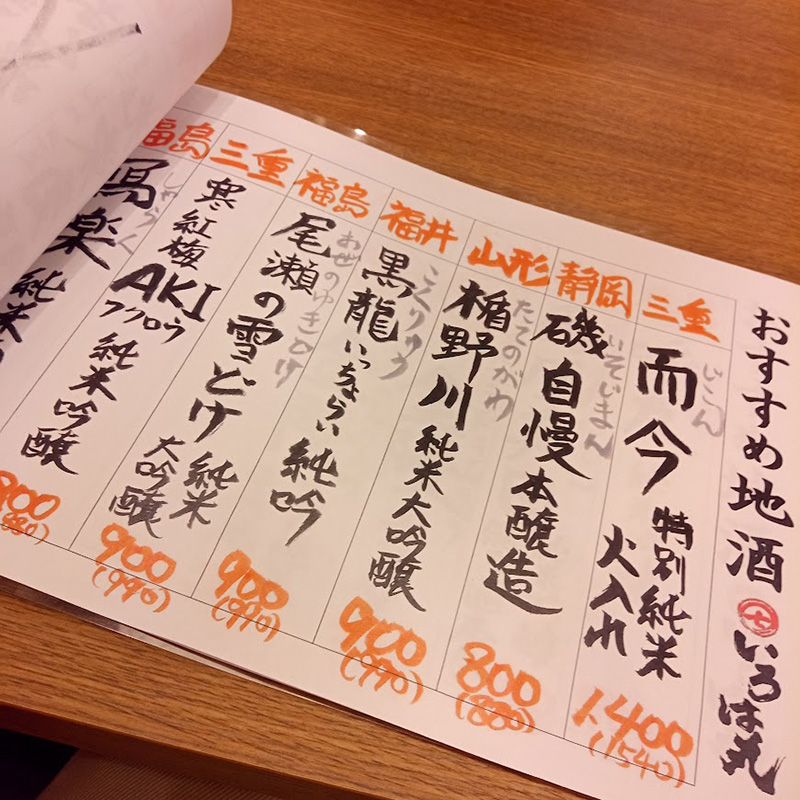 おすすめ地酒 いろは丸
三重
而今
じこん
特別純米
火入れ
1,400
(1540)
静岡
磯自慢
いそじまん
本醸造
800
(880)
山形
楯野川
たてのがわ
純米大吟醸
900
(990)
福井
黒龍
こくりゅう
いっちょらい
純吟
900
(990)
福島
尾瀬の雪どけ
おぜのゆきどけ
純米
大吟醸
900
(990)
三重
寒紅梅
AKI
フクロウ
純米吟醸
(880)
福島
冩楽
しゃらく
純米